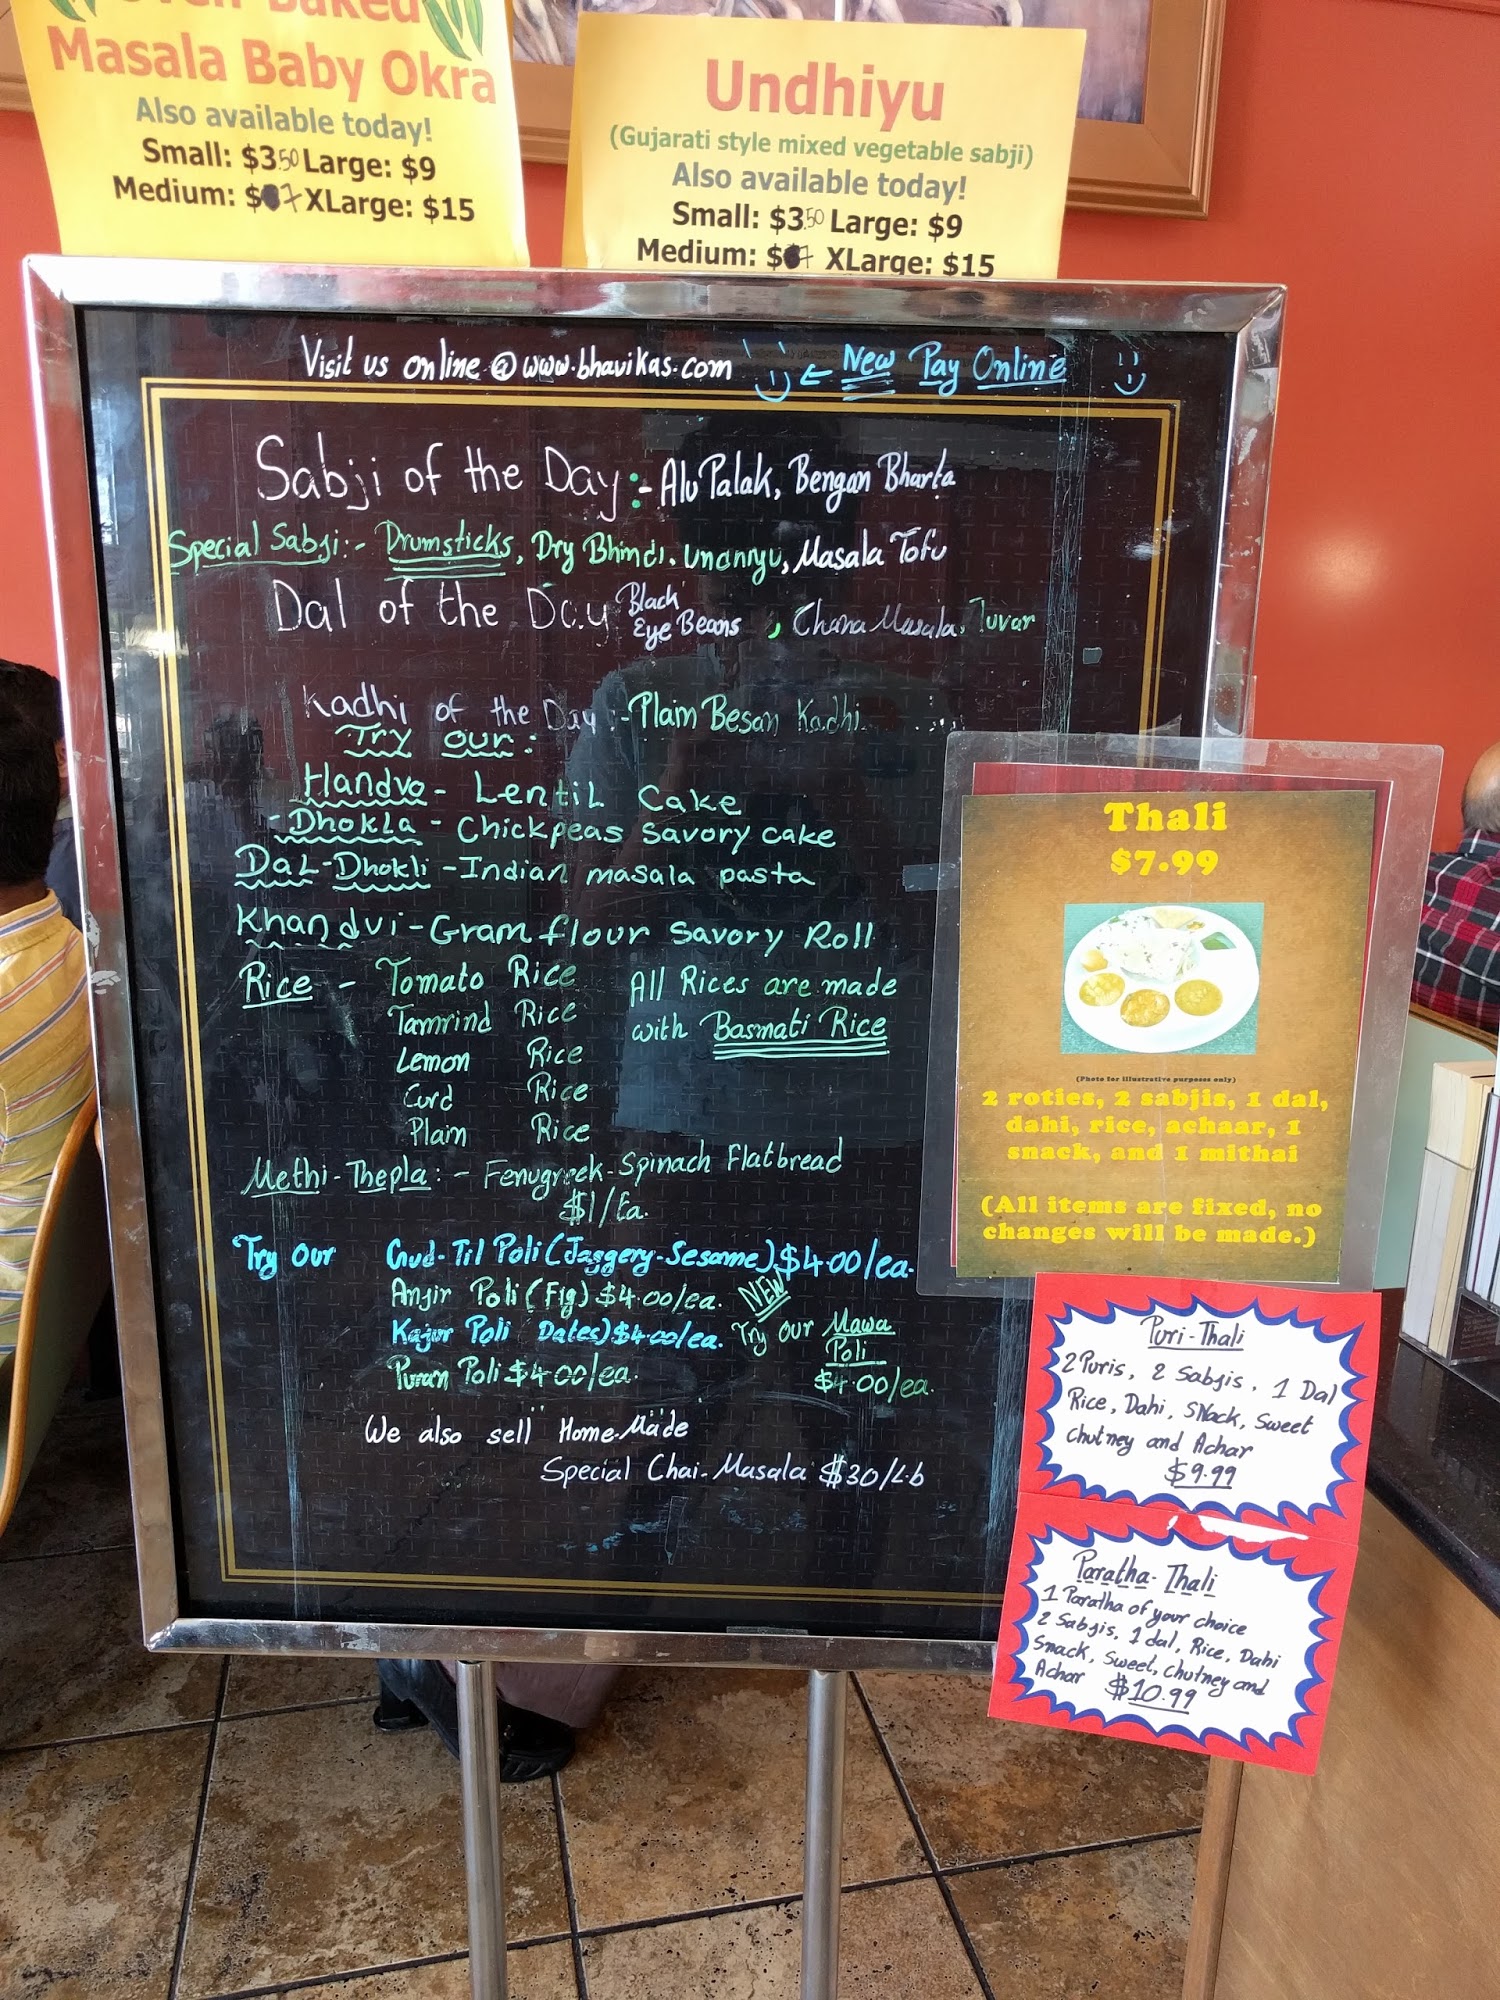 Baked
Masala Baby Okra
Also available today!
Small: $3.50 Large: $9
Medium: $7 XLarge: $15
Undhiyu
(Gujarati style mixed vegetable sabji)
Also available today!
Small: $3.50 Large: $9
Medium: $7 XLarge: $15
Visit us online @ www.bhavikas.com ← New Pay Online
Sabji of the Day:- Alu Palak, Bengan Bharta
Special Sabji:- Drumsticks, Dry Bhindi, Masala Tofu
Dal of the Day Black Eye Beans, Chana Masala, Tuvar
Kadhi of the Day:- Plain Besan Kadhi
Try our:
Handvo - Lentil Cake
- Dhokla - Chickpeas savory cake
Dal-Dhokli - Indian masala pasta
Khandvi - Gram flour Savory Roll
Rice - Tomato Rice
Tamrind Rice
Lemon Rice
Curd Rice
Plain Rice
All Rices are made
with Basmati Rice
Methi-Thepla:- Fenugreek-Spinach Flatbread
$1/Ea.
Try Our Gud-Til Poli (Jaggery-Sesame) $4.00/ea.
Anjir Poli (Fig) $4.00/ea.
Kajur Poli Dates) $4.00/ea.
Puran Poli $4.00/ea.
NEW
Try Our Mawa
Poli
$4.00/ea.
We also sell "Home-Made"
Special Chai-Masala $30/Lb
Thali
$7.99
(Photo for illustrative purposes only)
2 roties, 2 sabjis, 1 dal,
dahi, rice, achaar, 1
snack, and 1 mithai
(All items are fixed, no
changes will be made.)
Puri-Thali
2 Puris, 2 Sabjis, 1 Dal
Rice, Dahi, SNack, Sweet
chutney and Achar
$9.99
Paratha-Thali
1 Paratha of your choice
2 Sabjis, 1 dal, Rice, Dahi
Snack, Sweet, chutney and
Achar $10.99